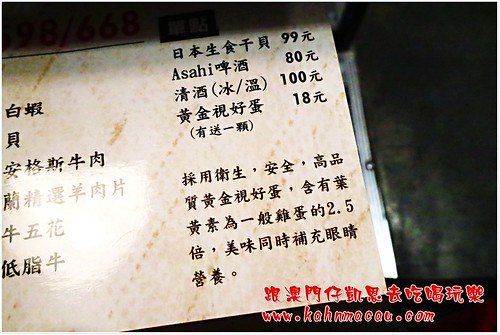 598/668
單點
日本生食干貝 99元
Asahi啤酒 80元
清酒(冰/溫) 100元
黃金視好蛋 18元
(有送一顆)
白蝦
貝
安格斯牛肉
蘭精選羊肉片
牛五花
低脂牛
採用衛生,安全,高品
質黃金視好蛋,含有葉
黃素為一般雞蛋的2.5
倍,美味同時補充眼睛
營養。
跟澳門仔凱恩去吃喝玩樂
www.kahnmacau.com